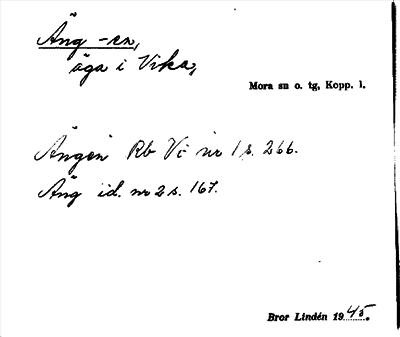 Äng -en,
äga i Vika,
Mora sn o. tg, Kopp. l.
Ängen Rb Vi nr 1 s. 266.
Äng id. nr 2 s. 167.
Bror Lindén 1945.